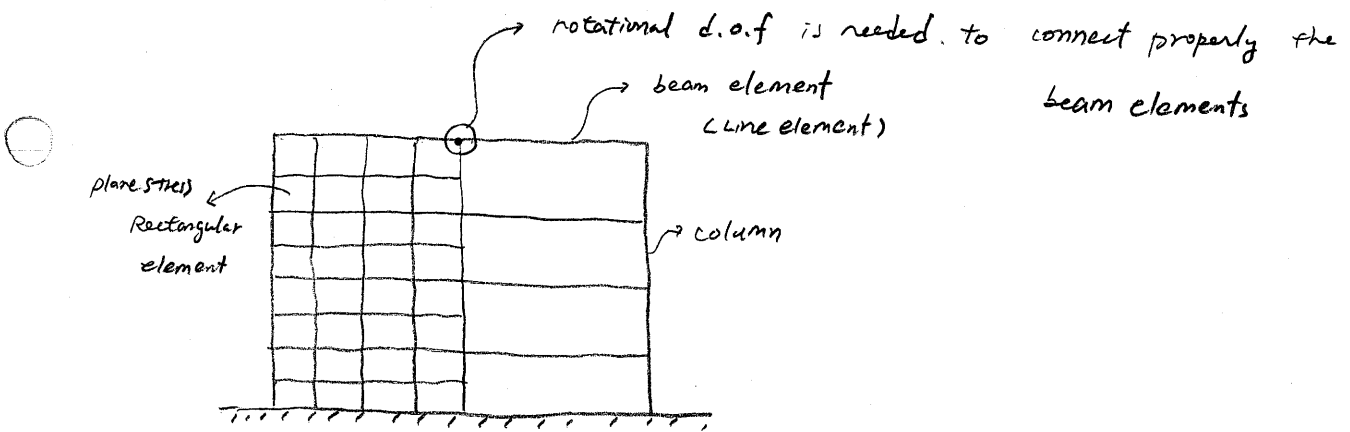 rotational d.o.f is needed. to connect properly the
beam elements
beam element
(Line element)
plane stress
Rectangular
element
column